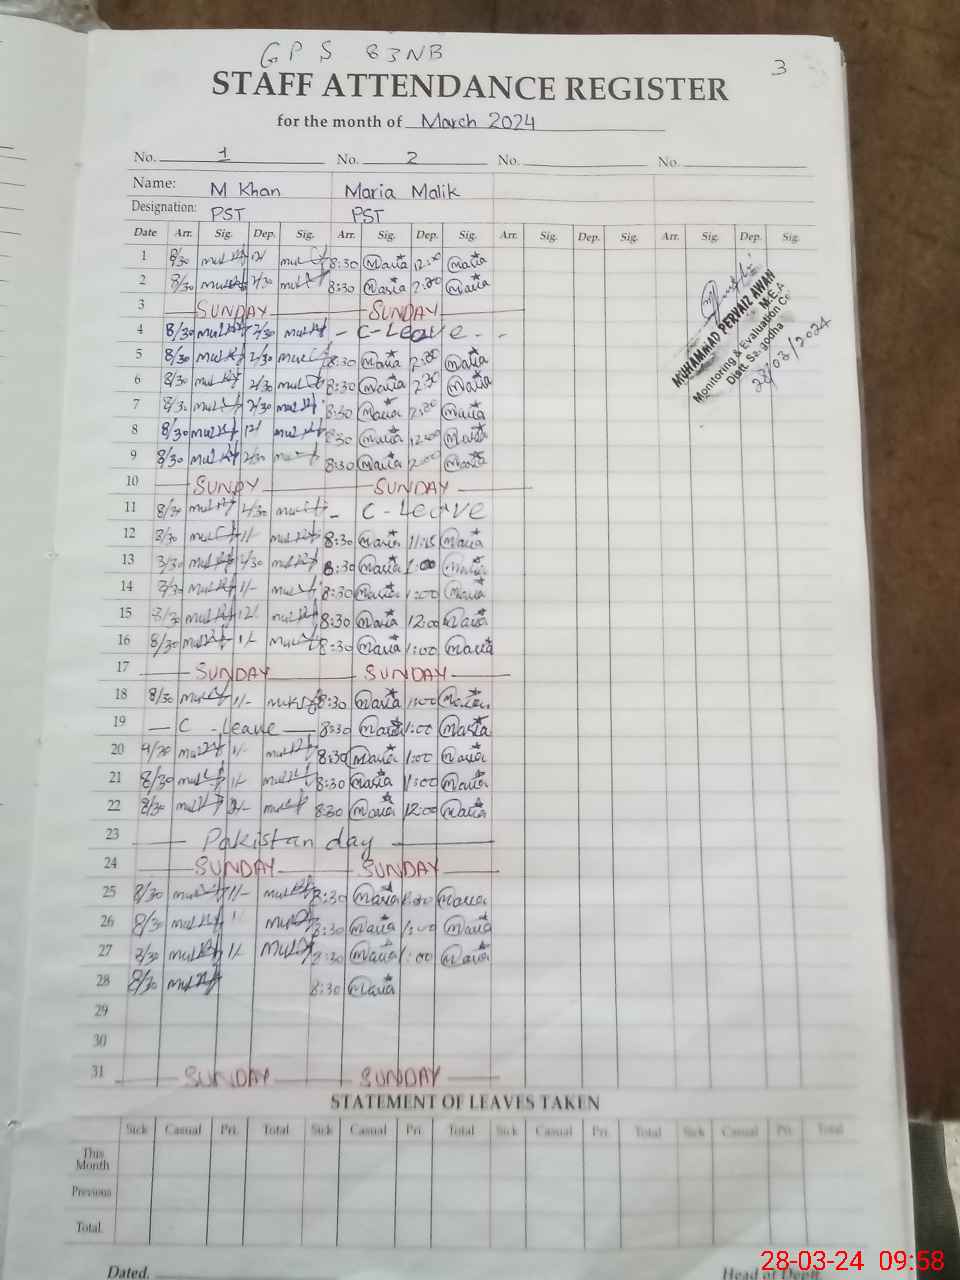 GPS 83NB
3
STAFF ATTENDANCE REGISTER
for the month of March 2024
No. 1 No. 2 No. No.
Name: M Khan Maria Malik
Designation: PST PST
Date Arr. Sig. Dep. Sig. Arr. Sig. Dep. Sig. Arr. Sig. Dep. Sig. Arr. Sig. Dep. Sig.
1 8/30 12/ 8:30 Maria 12:30 Maria
2 8/30 2/30 8:30 Maria 2:30 Maria
3 SUNDAY SUNDAY
4 8/30 2/30 - C-Leave - -
5 8/30 2/30 8:30 Maria 2:30 Maria
6 8/30 2/30 8:30 Maria 2:30 Maria
7 8/30 2/30 8:30 Maria 2:30 Maria
8 8/30 12/ 8:30 Maria 12:00 Maria
9 8/30 2/30 8:30 Maria 2:00 Maria
10 SUNDY SUNDAY
11 8/30 2/30 - C-Leave
12 8/30 1/- 8:30 Maria 11:15 Maria
13 8/30 1/30 8:30 Maria 1:00 Maria
14 8/30 1/- 8:30 Maria 1:00 Maria
15 8/30 12/ 8:30 Maria 12:00 Maria
16 8/30 1/- 8:30 Maria 1:00 Maria
17 SUNDAY SUNDAY
18 8/30 1/- 8:30 Maria 1:00 Maria
19 C - Leave 8:30 Maria 1:00 Maria
20 1/- 8:30 Maria 1:00 Maria
21 8/30 1/- 8:30 Maria 1:00 Maria
22 8/30 8:30 Maria 12:00 Maria
23 Pakistan day
24 SUNDAY SUNDAY
25 8/30 1/- 8:30 Maria Maria
26 8/30 8:30 Maria 1:00 Maria
27 8/30 1/- 8:30 Maria 1:00 Maria
28 8/30 8:30 Maria
29
30
31 SUNDAY SUNDAY
MUHAMMAD PERVAIZ AWAN
M.E.A
Monitoring & Evaluation
Distt. Sargodha
28/03/2024
STATEMENT OF LEAVES TAKEN
Sick Casual Pri. Total Sick Casual Pri. Total Sick Casual Pri. Total Sick Casual Pri. Total
This Month
Previous
Total
Dated. Head of Deptt.
28-03-24 09:58